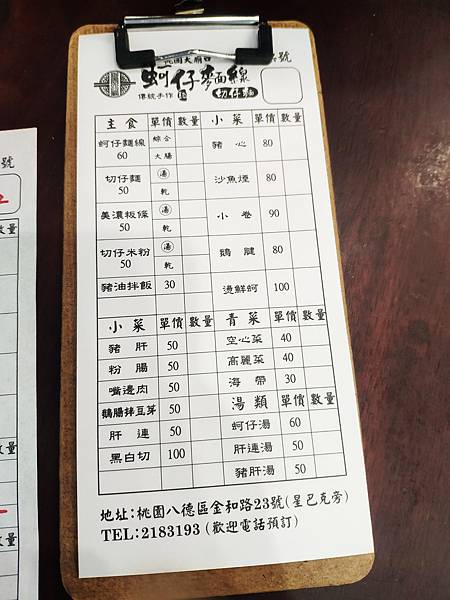 桃園大廟口
號
蚵仔麵線
傳統手作 切仔麵
主食 單價 數量 小菜 單價 數量
蚵仔麵線 60 綜合 大腸 豬心 80
切仔麵 50 湯 乾 沙魚煙 80
美濃板條 50 湯 乾 小卷 90
切仔米粉 50 湯 乾 鵝腱 80
豬油拌飯 30 燙鮮蚵 100
小菜 單價 數量 青菜 單價 數量
豬肝 50 空心菜 40
粉腸 50 高麗菜 40
嘴邊肉 50 海帶 30
鵝腸拌豆芽 50 湯類 單價 數量
肝連 50 蚵仔湯 60
黑白切 100 肝連湯 50
豬肝湯 50
地址:桃園八德區金和路23號(星巴克旁)
TEL:2183193 (歡迎電話預訂)
號
數量
數量
數量